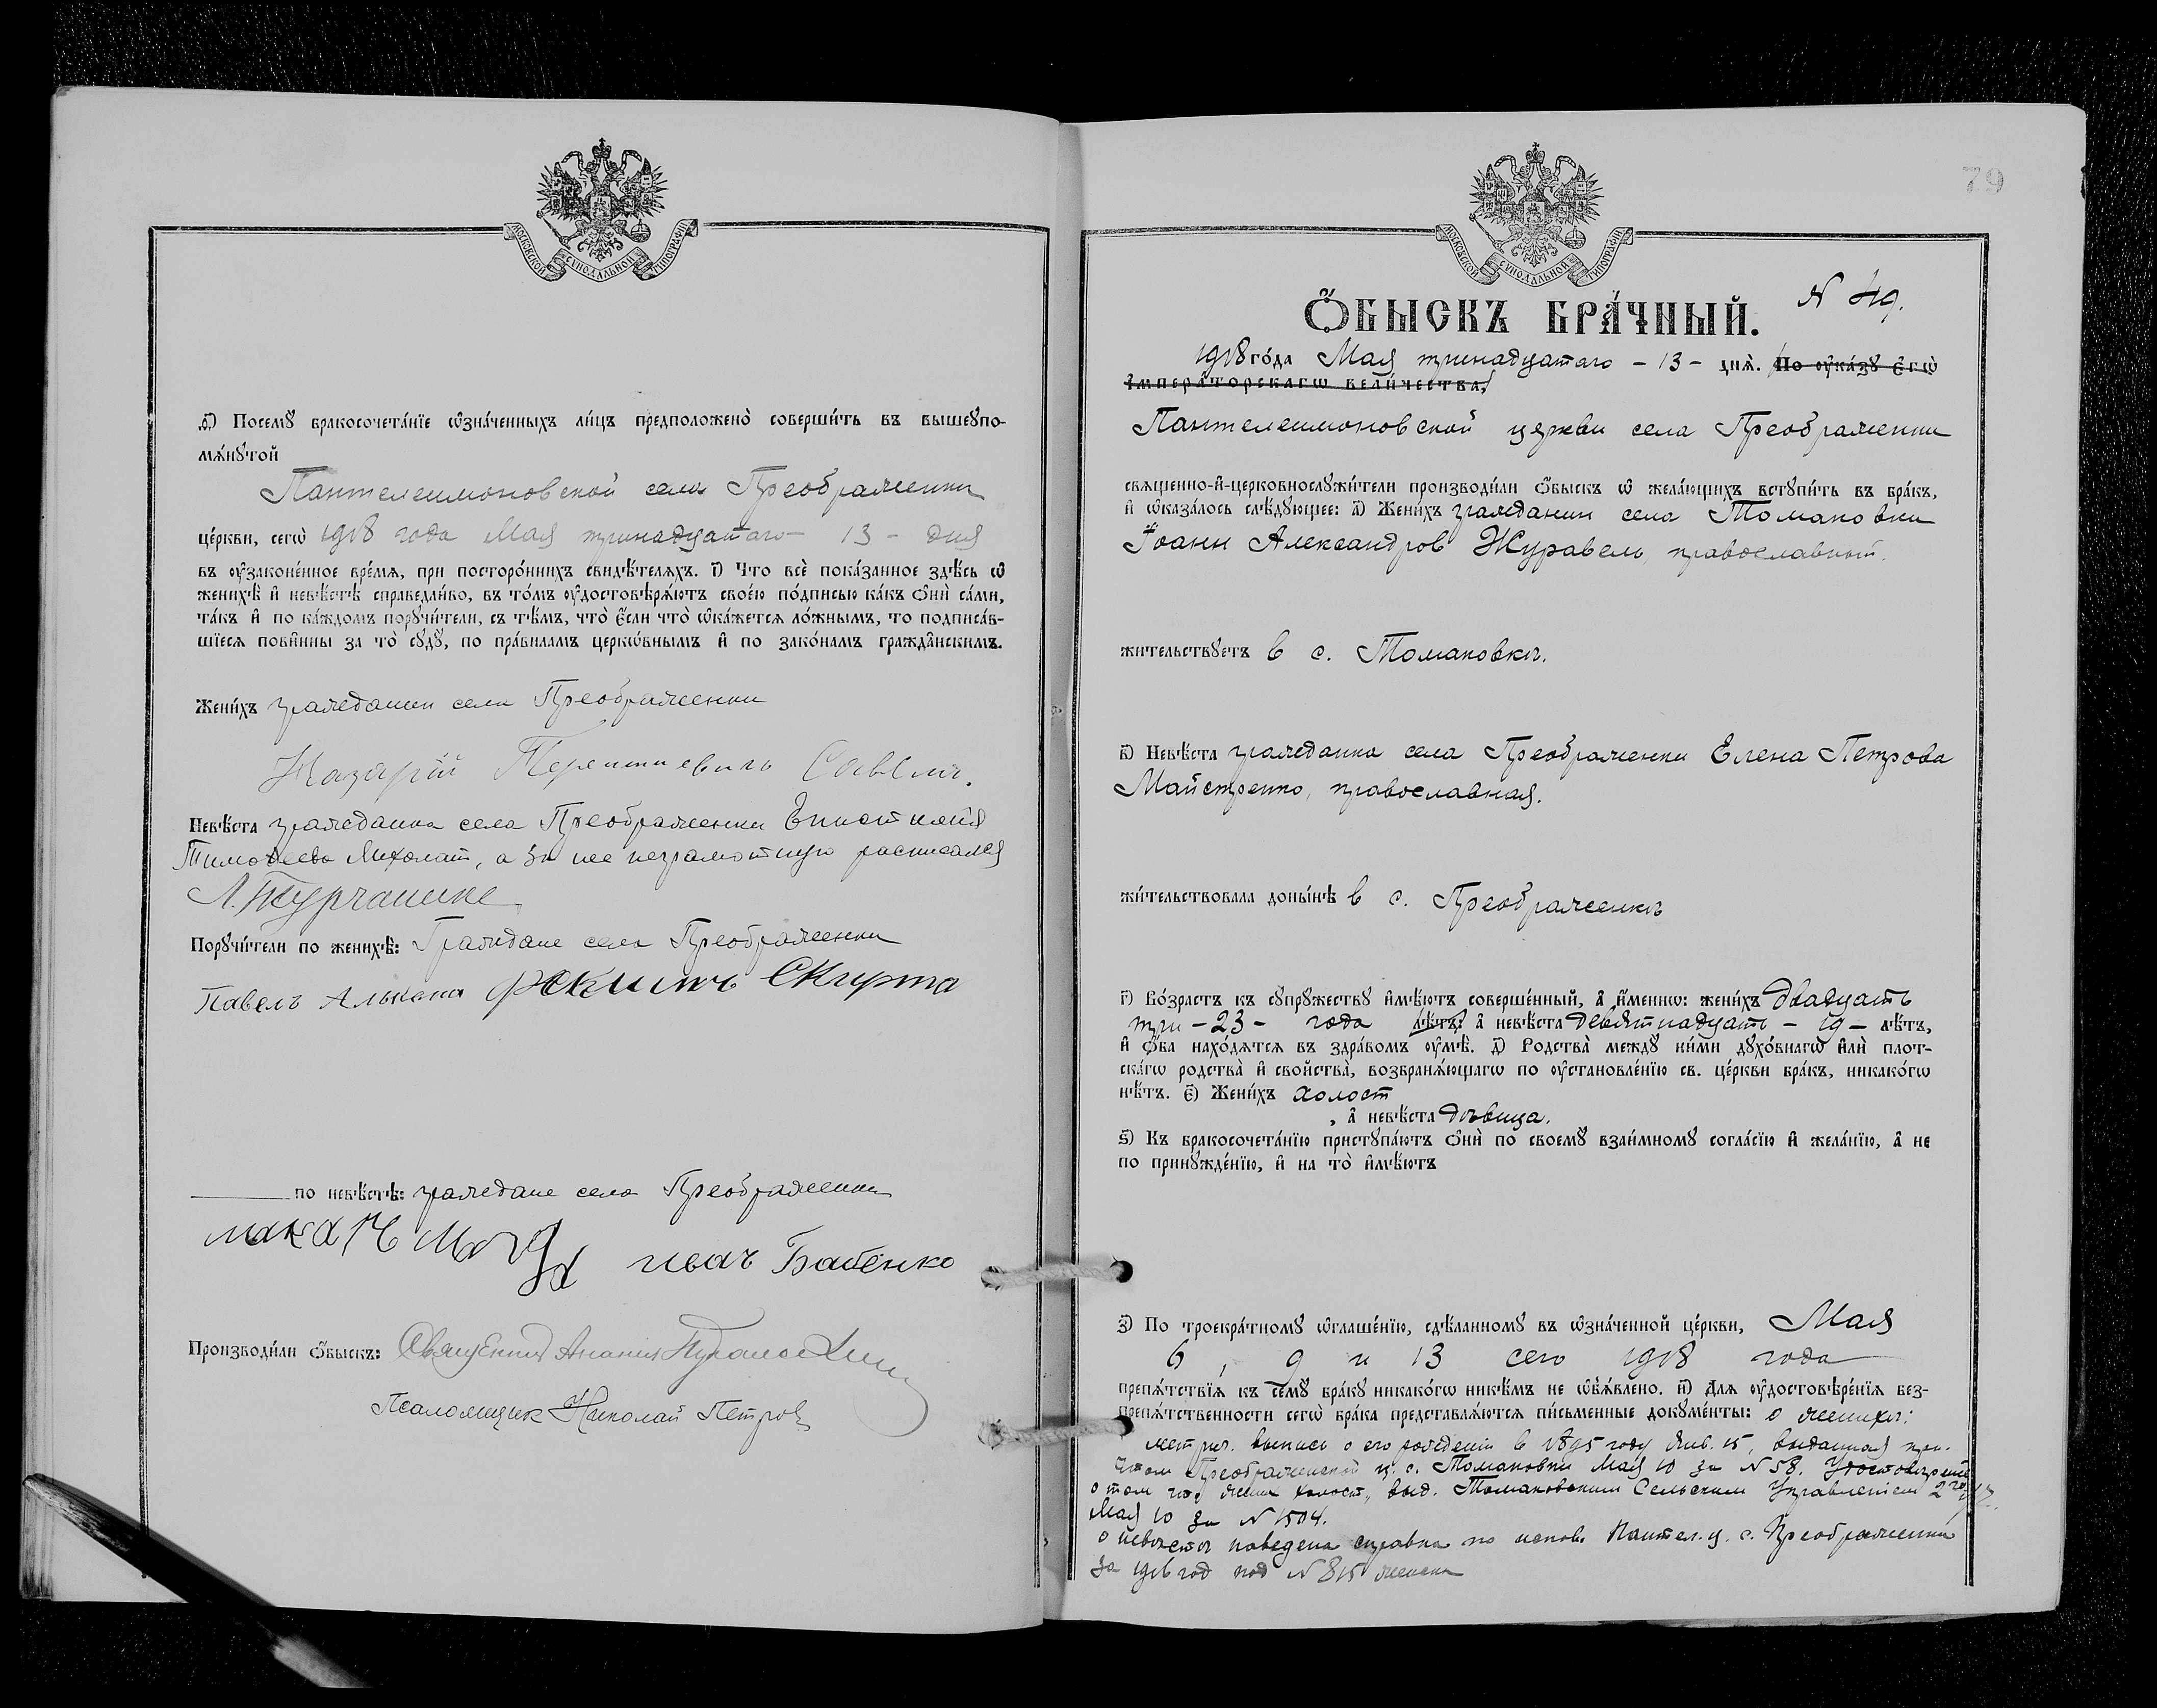 МОСКОВСКОЙ СѴНОДАЛЬНОЙ ТИПОГРАФІИ
ѳ҃) Посемꙋ бракосочета́нїе ѡ҆зна́ченныхъ ли́цъ предположено̀ соверши́ть въ вышеꙋпо-
мѧ́нꙋтой
Пантелеимоновской села Преображенки
це́ркви, сегѡ̀ 1918 года Мая тринадцатаго - 13 - дня
въ ᲂу҆законе́нное вре́мѧ, при посторо́ннихъ свидѣ́телѧхъ. і҃) Что всѐ пока́занное здѣ́сь ѡ҆
женихѣ̀ и҆ невѣ́стѣ справедли́во, въ то́мъ ᲂу҆достовѣрѧ́ютъ свое́ю по́дписью ка́къ ѻ҆нѝ са́ми,
та́къ и҆ по ка́ждомъ порꙋчи́тели, съ тѣ́мъ, что̀ є҆́сли что̀ ѡ҆ка́жетсѧ ло́жнымъ, то подписа́в-
шїесѧ пови́нны за то̀ сꙋдꙋ̀, по пра́виламъ церкѡ́внымъ и҆ по зако́намъ гражда́нскимъ.
Жени́хъ гражданин села Преображенки
Назарій Терентиевичъ
Невѣ́ста гражданка села Преображенки
Тимоѳеева Михолат, а за нее неграмотную расписался
Порꙋчи́тели по женихѣ̀: Граждане села Преображенки
Павелъ Скирта
по невѣ́стѣ: граждане села Преображенки
иванъ Бабенко
Производи́ли ѻ҆́быскъ: Священникъ Анания
Псаломщик Николай Петров
79
МОСКОВСКОЙ СѴНОДАЛЬНОЙ ТИПОГРАФІИ
N 49.
Ѻ҆́БЫСКЪ БРА́ЧНЫЙ.
1918 го́да Мая тринадцатаго - 13 - днѧ̀. По ᲂу҆ка́зꙋ Є҆гѡ̀
І҆мпера́торскагѡ вели́чества,
Пантелеимоновской церкви села Преображенки
свѧщенно-и҆-церковнослꙋжи́тели производи́ли ѻ҆́быскъ ѡ҆ жела́ющихъ встꙋпи́ть въ бра́къ,
и҆ ѡ҆каза́лось слѣ́дꙋющее: а҃) Жени́хъ гражданин села Томаковки
Іоанн Александров Журавель, православный.
жи́тельствꙋетъ в с. Томаковкѣ.
в҃) Невѣ́ста гражданка села Преображенки Елена Петрова
Майстренко, православная.
жи́тельствовала доны́нѣ в с. Преображенкѣ
г҃) Во́зрастъ къ сꙋпрꙋ́жествꙋ и҆мѣ́ютъ соверше́нный, а҆ и҆́меннѡ: жени́хъ двадцать
три - 23 - года лѣ́тъ, а҆ невѣ́ста девятнадцать - 19 - лѣ́тъ,
и҆ ѻ҆́ба нахо́дѧтсѧ въ здра́вомъ ᲂу҆мѣ̀. д҃) Родства̀ междꙋ̀ ни́ми дꙋхо́внагѡ и҆лѝ плот-
ска́гѡ родства̀ и҆ свойства̀, возбранѧ́ющагѡ по ᲂу҆становле́нїю св. це́ркви бра́къ, никако́гѡ
нѣ́тъ. є҃) Жени́хъ холост
, а҆ невѣ́ста дѣвица.
ѕ҃) Къ бракосочета́нїю пристꙋпа́ютъ ѻ҆нѝ по своемꙋ̀ взаи́мномꙋ согла́сїю и҆ жела́нїю, а҆ не
по принꙋжде́нїю, и҆ на то̀ и҆мѣ́ютъ
з҃) По троекра́тномꙋ ѡ҆глаше́нїю, сдѣ́ланномꙋ въ ѡ҆зна́ченной це́ркви, Мая
6, 9 и 13 сего 1918 года
препѧ́тствїѧ къ семꙋ̀ бра́кꙋ никако́гѡ никѣ́мъ не ѡ҆б̾ѧ́влено. и҃) Длѧ ᲂу҆достовѣре́нїѧ без-
препѧ́тственности сегѡ̀ бра́ка представлѧ́ютсѧ пи́сьменные докꙋме́нты: о женихѣ:
метрич. выпись о его рождении в 1895 году Янв. 15, выданная прич-
том Преображенской ц. с. Томаковки Мая 10 за N 58. Удостоверение
о том что жених холост, выд. Томаковским Сельским Управлением
Мая 10 за N 1504.
о невѣстѣ наведена справка по испов. Пантел. ц. с. Преображенки
за 1916 год под N 815 женска